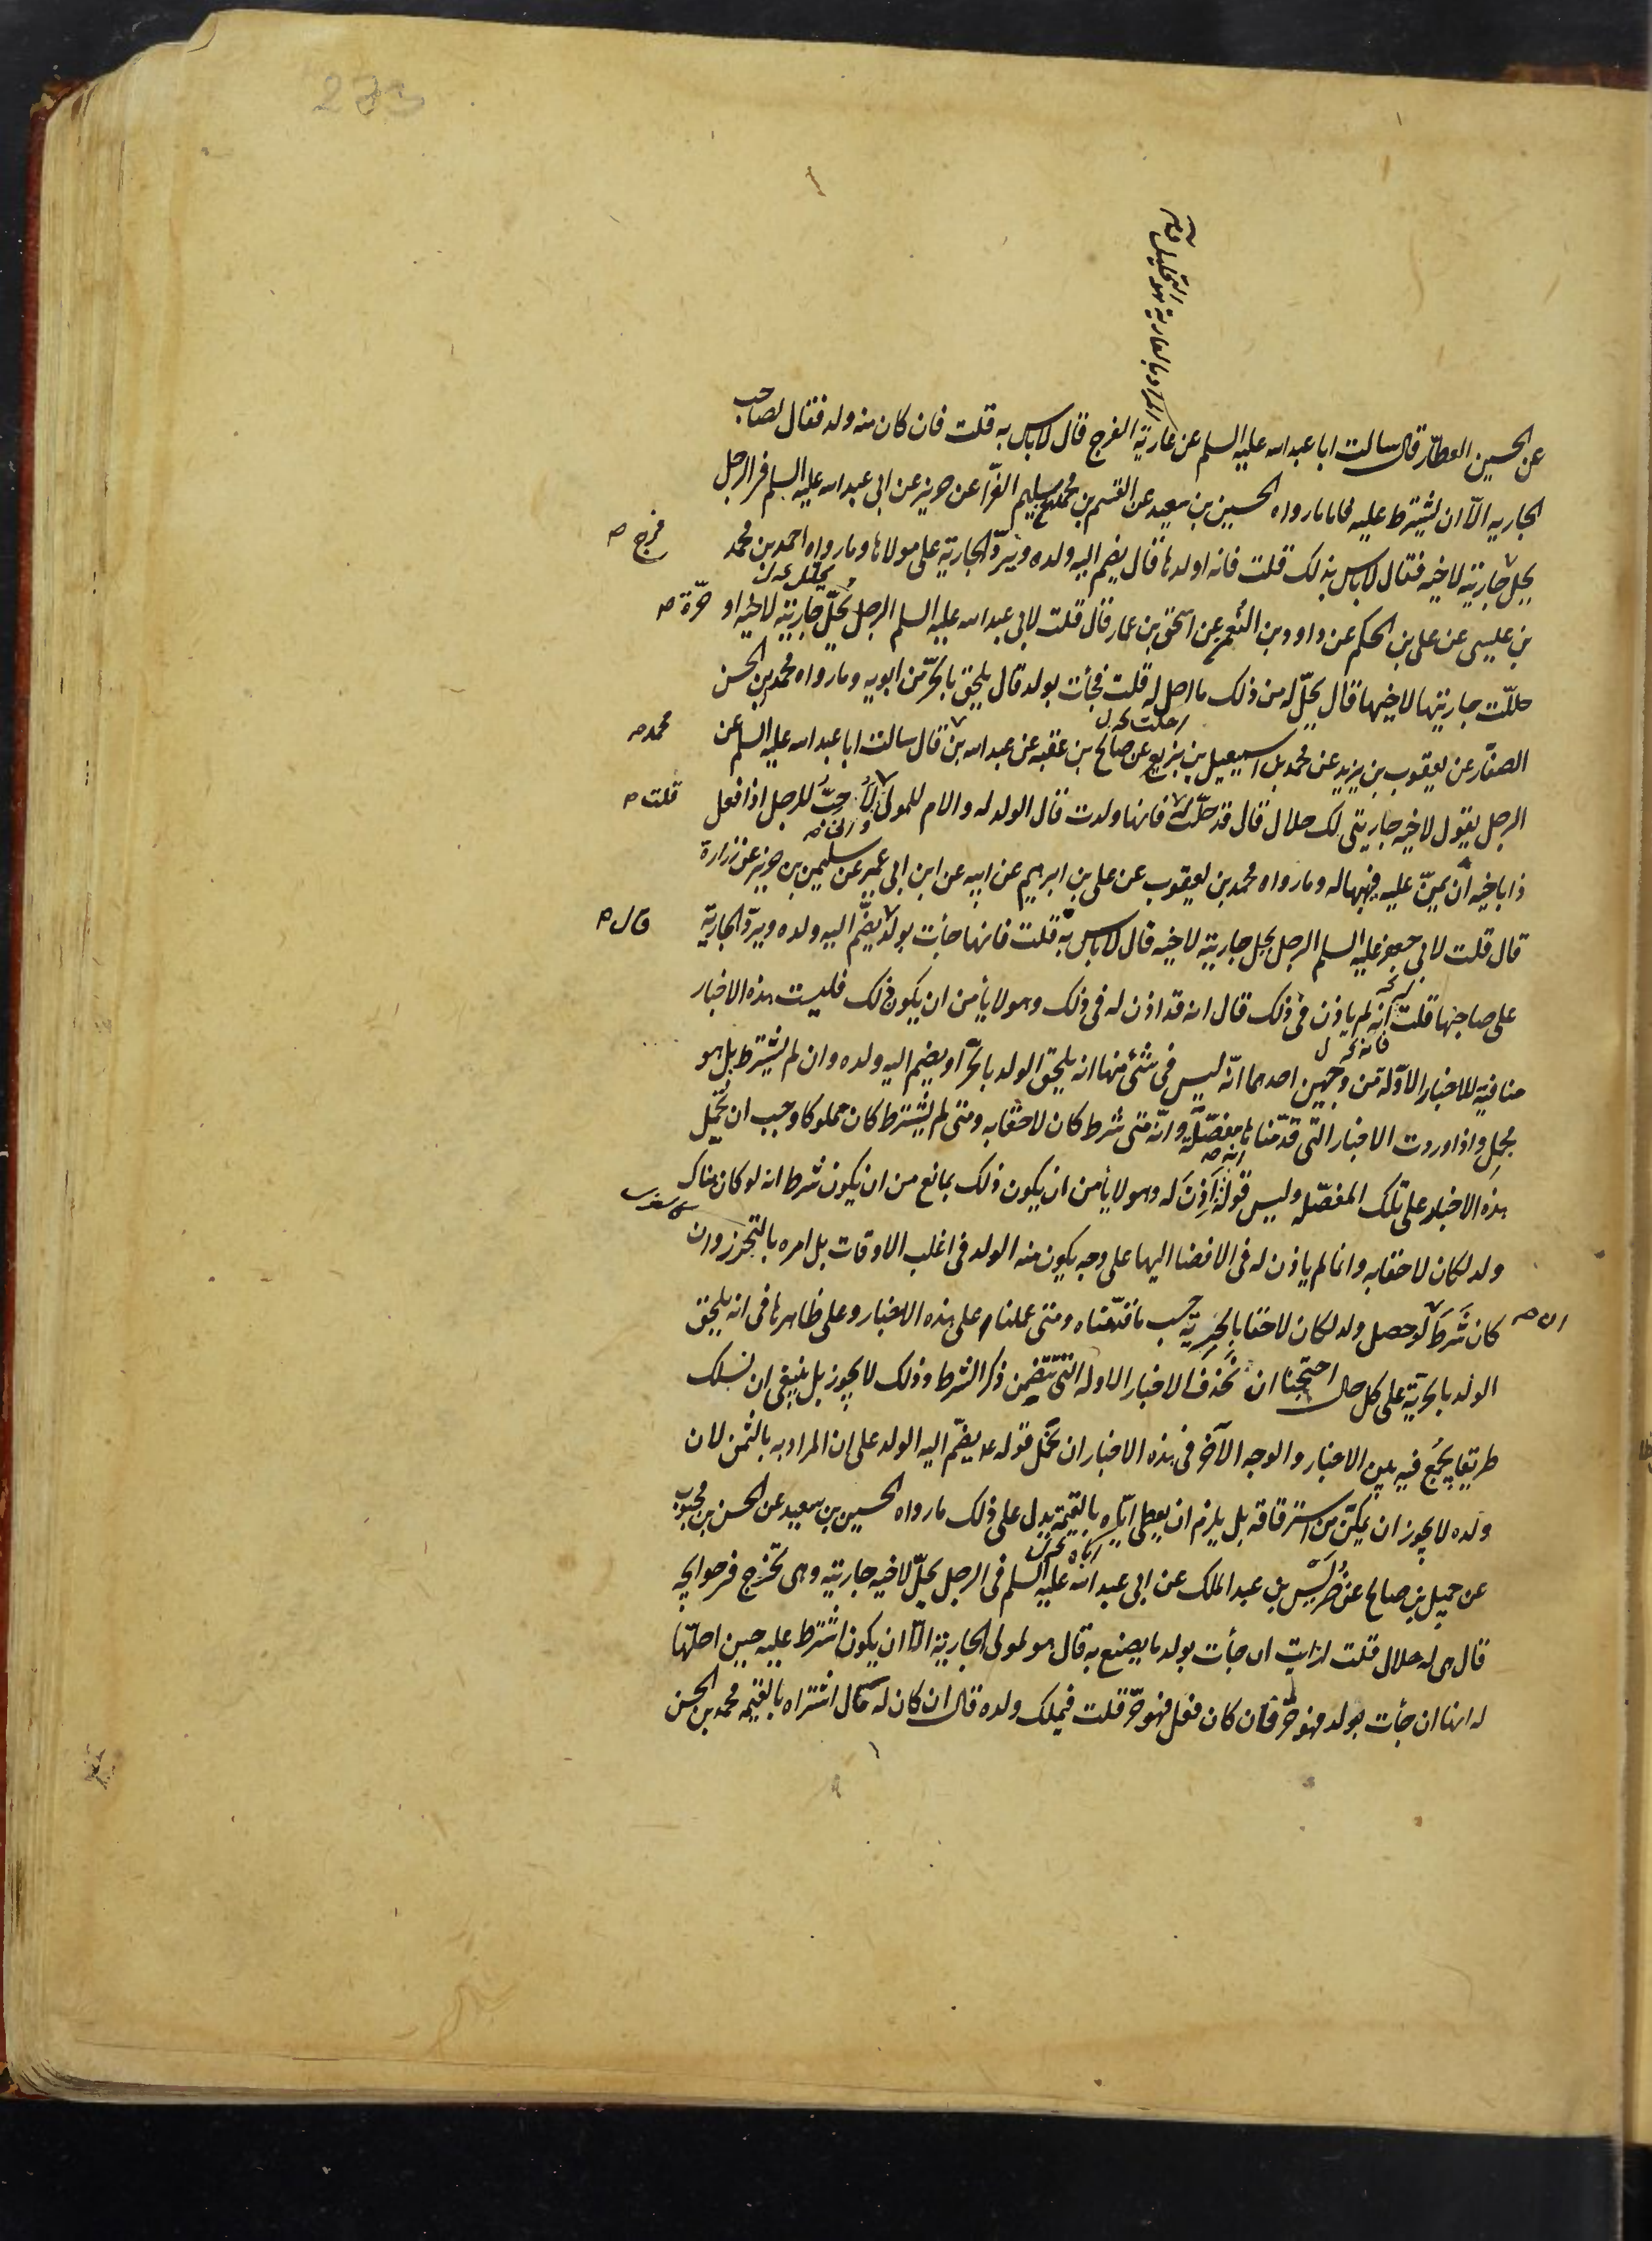 273
المراد بالعارية هو التحليل
عن الحسين العطار قال سالت ابا عبد الله عليه السلم عن عارية الفرج قال لا باس به قلت فان كان منه ولد فقال لصاحب
الجاريه الا ان يشترط عليه فاما ما رواه الحسين بن سعيد عن القسم بن محمد عن سليم الفرّا عن حريز عن ابى عبد الله عليه السلم فى الرجل
يحل جاريته لاخيه فقال لا باس بذلك قلت فانه اولدها قال يضم اليه ولده ويردّ الجارية على مولاها وما رواه احمد بن محمد
فرج
بن عيسى عن على بن الحكم عن داود بن النعمن عن اسحق بن عمار قال قلت لابى عبد الله عليه السلم الرجل يحلّ جاريته لاخيه او
حرّة
حللّت جاريتها لاخيها قال يحلّ له من ذلك ما احل له قلت فجأت بولد قال يلحق بالحرّ من ابويه وما رواه محمد بن الحسن
الصفّار عن يعقوب بن يزيد عن محمد بن اسمعيل بن بزيع عن صالح بن عقبه عن عبد الله بن قال سالت ابا عبد الله عليه السلم عن
محمد
الرجل يقول لاخيه جاريتى لك حلال قال قد حلّت له فانها ولدت قال الولد له والام للمولى لاحبّ للرجل اذا فعل
قلت
ذا باخيه ان يمنّ عليه فيهبها له وما رواه محمد بن يعقوب عن على بن ابرهيم عن ابيه عن ابن ابى عمير عن سليمن بن حريز عن زرارة
قال قلت لابى جعفر عليه السلم الرجل يحل جاريته لاخيه قال لا باس به قلت فانها جأت بولد يضّم اليه ولده ويردّ الجارية
قال
على صاحبها قلت انه لم ياذن فى ذلك قال انه قد اذن له فى ذلك وهو لا يأمن ان يكون ذلك فليست هذه الاخبار
منافية للاخبار الاوّلة من وجهين احدهما انّه ليس فى شئ منها انه يلحق الولد بالحرّ او يضم اليه ولده وان لم يشترط بل هو
مجمل واذا وردت الاخبار التى قدّمناها مفصّلة وانّه متى شرط كان لاحقا به ومتى لم يشترط كان مملوكا وجب ان تحمل
هذه الاخبار على تلك المفصّله وليس قوله اَذِنَ له وهو لا يأمن ان يكون ذلك بمانع من ان يكون شرط انه لو كان هناك
ولد لكان لاحقا به وانما لم ياذن له فى الافضا اليها على وجه يكون منه الولد فى اغلب الاوقات بل امره بالتحرز وان
كان شَرَطَ لو حصل ولد لكان لاحقا بالحرية حسب ما قدّمناه ومتى عملنا على هذه الاخبار وعلى ظاهرها فى انه يلحق
الولد بالحرّية على كل حال احتجنا ان نحذف الاخبار الاوله التى تتضمن ذكر الشرط وذلك لا يجوز بل ينبغى ان نسلك
طريقا يجمع فيه بين الاخبار والوجه الآخر فى هذه الاخبار ان نحمل قوله ع يضّم اليه الولد على ان المراد به بالثمن لان
ولده لا يجوز ان يمكّن من استرقاقه بل يلزم ان يعطى ايّاه بالقيمة يدل على ذلك ما رواه الحسين بن سعيد عن الحسن بن محبوب
عن جميل بن صالح عن ضُرَيس بن عبد الملك عن ابى عبد الله عليه السلم فى الرجل يحلّ لاخيه جاريته وهى تخرج فى حوايجه
قال هى له حلال قلت ارايت ان جأت بولد ما يصنع به قال هو لمولى الجارية الّا ان يكون اشترط عليه حين احلّها
له انها ان جأت بولد فهو حرّ فان كان فعل فهو حرّ قلت فيملك ولده قال ان كان له مال اشتراه بالقيمه محمد بن الحسن